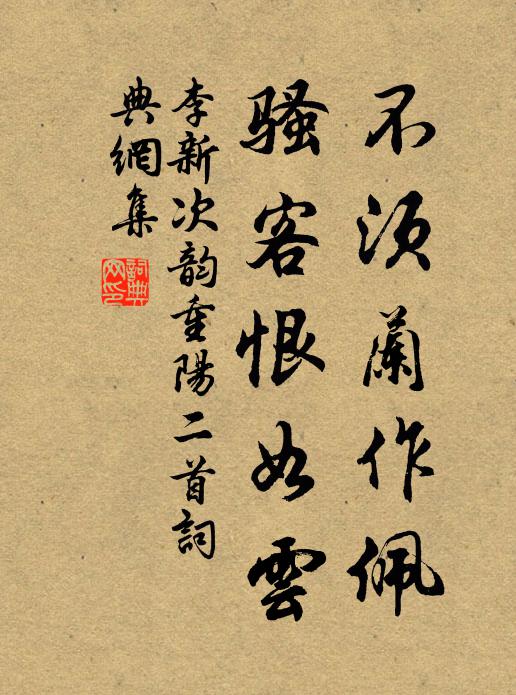 不須蘭作佩
騷客恨如雲
李新次韵重陽二首詞
典網集
詞典網印